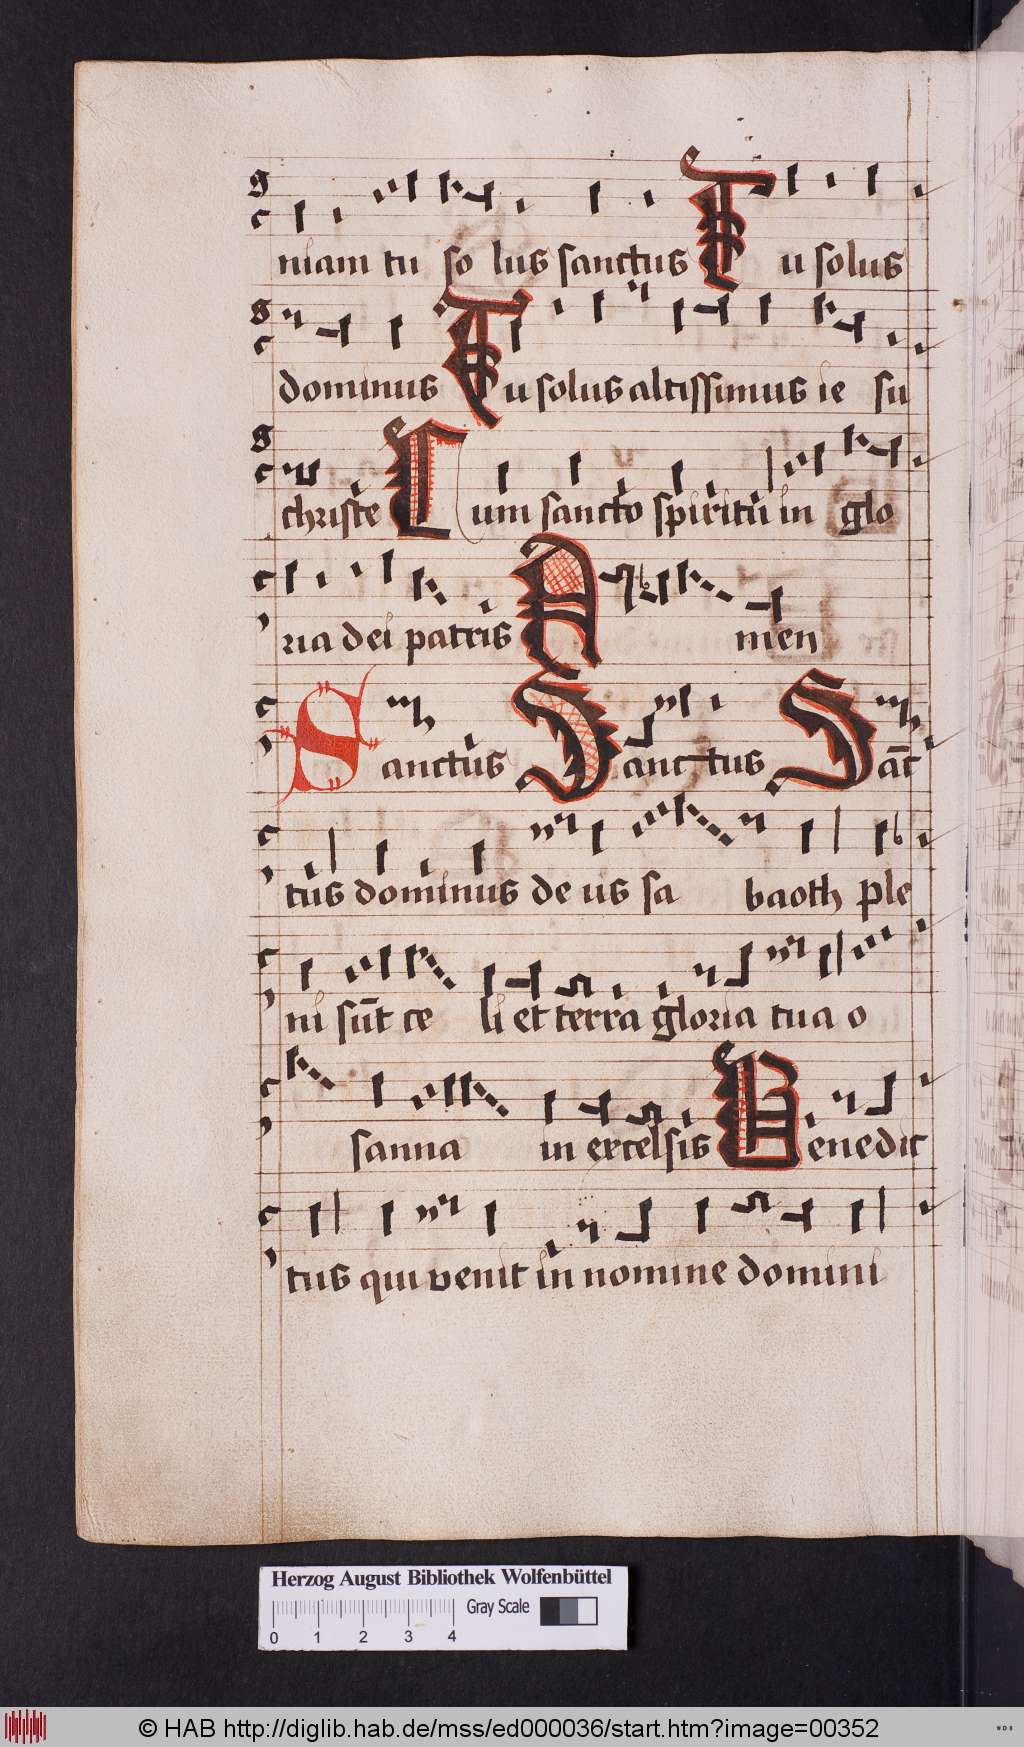 niam tu so lus sanctus Tu solus
dominus Tu solus altissimus ie su
christe Cum sancto spiritu in glo
ria dei patris A men
Sanctus Sanctus Sāc
tus dominus de us sa baoth ple
ni sūt ce li et terra gloria tua o
sanna in excelsis Benedic
tus qui venit in nomine domini
Herzog August Bibliothek Wolfenbüttel
Gray Scale
0 1 2 3 4
© HAB http://diglib.hab.de/mss/ed000036/start.htm?image=00352